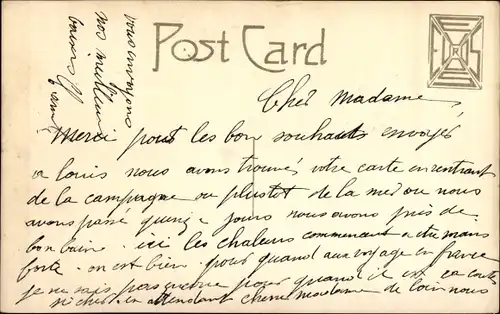 Post Card
Cher Madame,
Merci pour les bon souhaits envoyés
a louis nous avons trouvés votre carte en rentrant
de la campagne ou plustot de la mer ou nous
avons passé quinze jours nous avons pris de
bon bains. ici les chaleurs commencent a etre mans
forte. on est bien. pour quand aux voyage en france
je ne sais pas encore pour quand il est ça coute
si cher. en attendant chere madame de loin nous
vous envoyons
nos meilleur
baisers